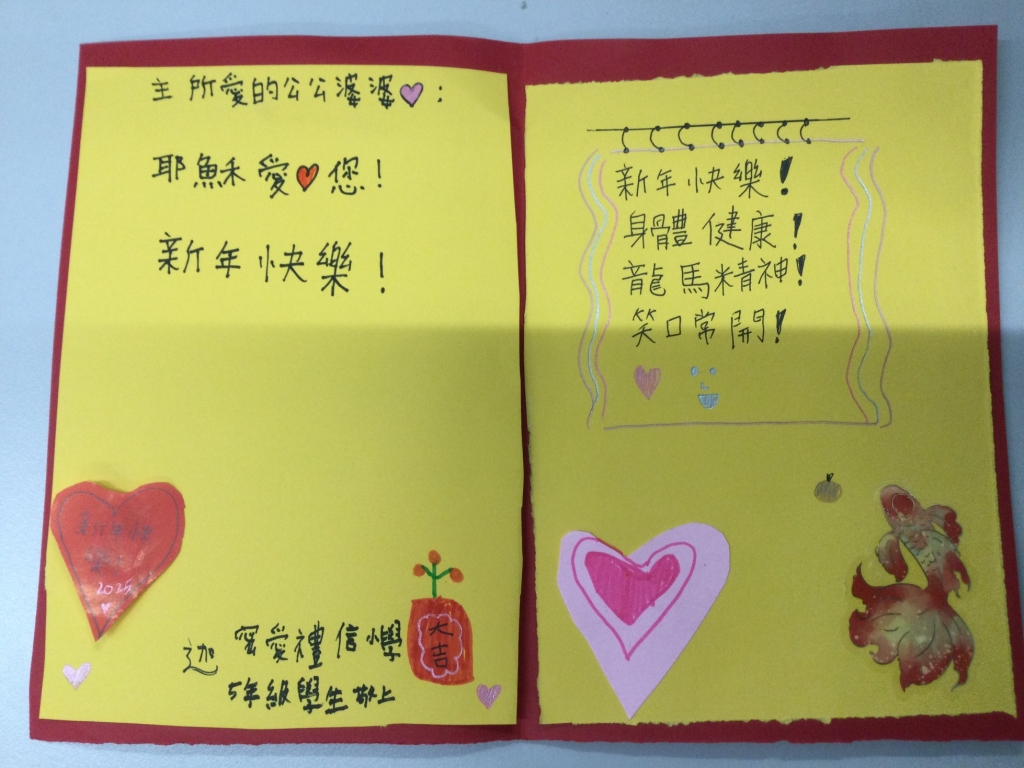 主所愛的公公婆婆：
耶穌愛您！
新年快樂！
新年快樂
2025
大吉
蜜愛禮信小學
5年級學生敬上
新年快樂！
身體健康！
龍馬精神！
笑口常開！